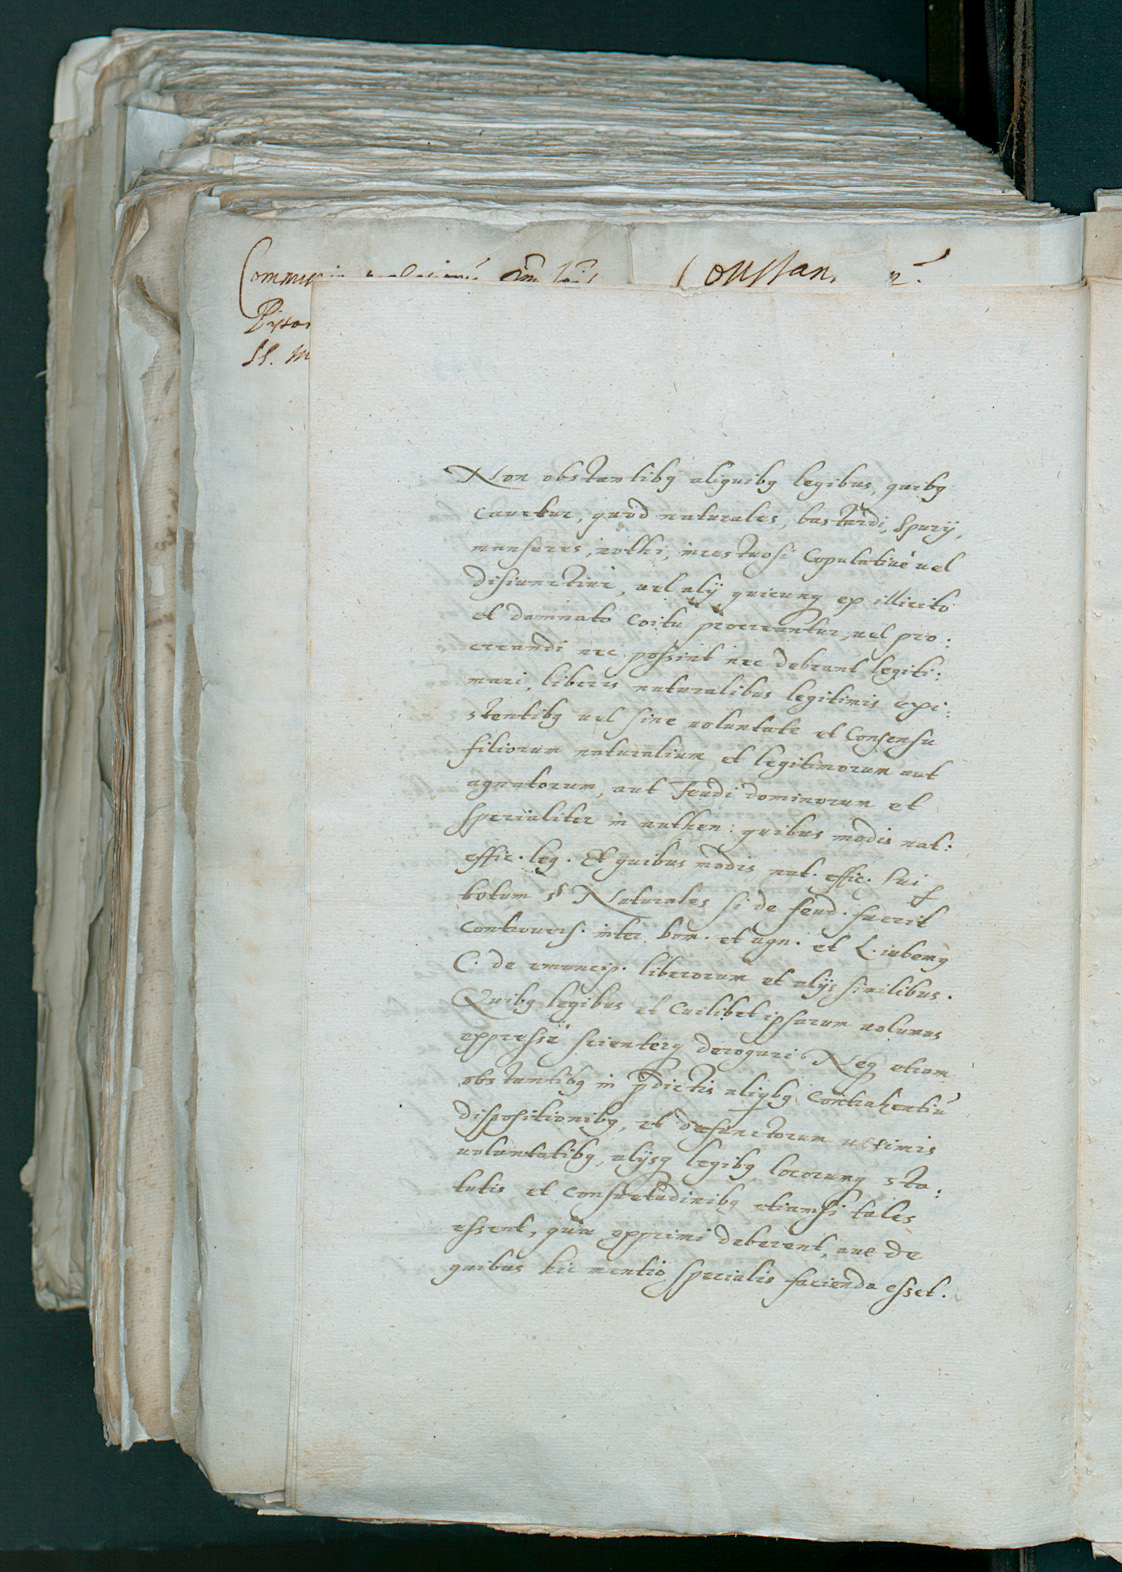 Constan
SS. M
Non obstantibꝫ aliquibꝫ legibus, quibꝫ
cauetur, quòd naturales, bastardi, spurij,
manseres, nothi, incestuosi copulatiuè uel
disiunctiuè, uel alij quicunqꝫ ex illicito
et damnato coitu procreantur, uel pro:
creandi nec possint nec debeant legiti:
mari, liberis naturalibus legitimis exi:
stentibꝫ uel sine uoluntate et Consensu
filiorum naturalium et legitimorum aut
agnatorum, aut feudi dominorum et
specialiter in authen: quibus modis nat:
effic. leg. Et quibus modis nat. effic. sui ꝑ
totum §§ Naturales si de feud. fuerit
controuers. inter. dom. et agn. et L. iubemꝫ
C. de emancip. liberorum et alijs similibus.
Quibꝫ legibus et cuilibet ipsarum uolumus
expressè scienterqꝫ derogari. Neqꝫ etiam
obstantibꝫ in p̃dictis aliqꝫbꝫ contrahentiũ
dispositionibꝫ, et defunctorum ultimis
uoluntatibꝫ, alijsqꝫ legibꝫ locorumqꝫ sta:
tutis et consuetudinibꝫ etiamsi tales
essent, quae exprimi deberent, aut de
quibus hic mentio specialis facienda esset.